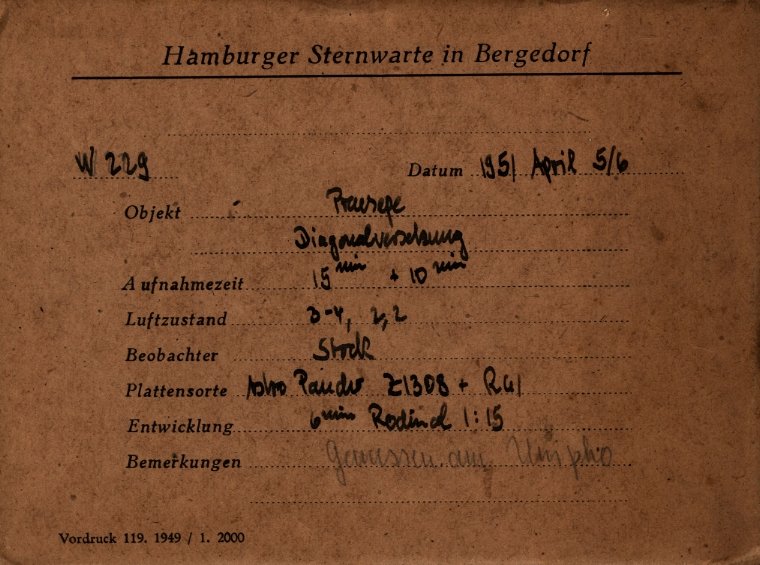 Hamburger Sternwarte in Bergedorf
W 229 Datum 1951 April 5/6
Objekt Praesepe
Diagonalversetzung
Aufnahmezeit 15 min + 10 min
Luftzustand 3-4, 2,2
Beobachter Stock
Plattensorte Astro Pancho Z1308 +
Entwicklung 6 min Rodinal 1:15
Bemerkungen Gemessen am
Vordruck 119. 1949 / 1. 2000